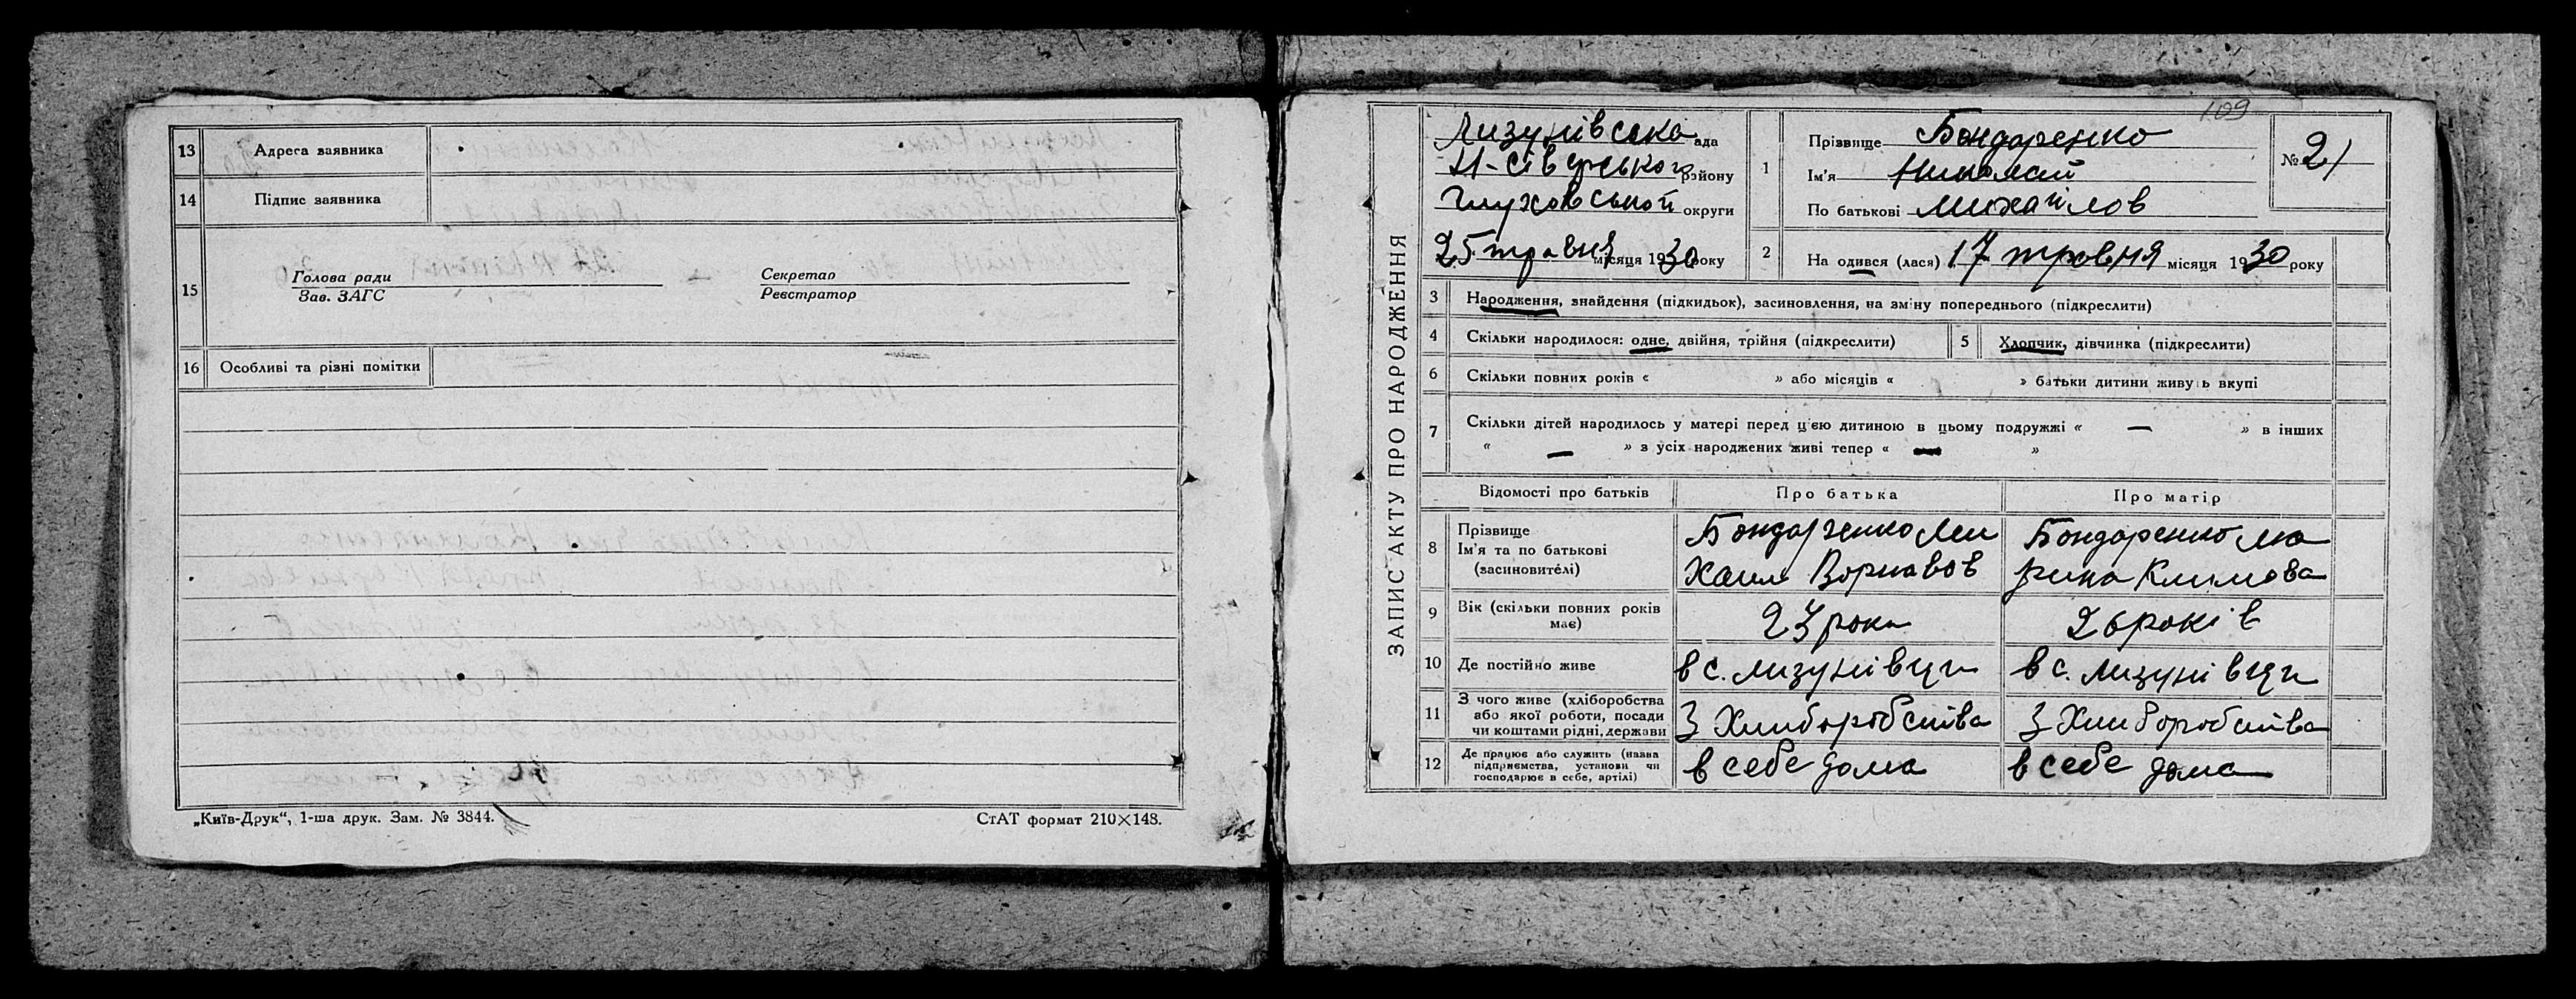 13 Адреса заявника
14 Підпис заявника
15 Голова ради Секретар
Зав. ЗАГС Реєстратор
16 Особливі та різні помітки
„Київ-Друк“, 1-ша друк. Зам. № 3844. СтАТ формат 210×148.
109
ЗАПИС АКТУ ПРО НАРОДЖЕННЯ
Лизунівська ада
Н-Сіверського району
Глуховської округи
25 травня місяця 1930 року
1 Прізвище Бондаренко
Ім'я Николай
По батькові Михайлов
№ 21
2 На одився (лася) 17 травня місяця 1930 року
3 Народження, знайдення (підкидьок), засиновлення, на зміну попереднього (підкреслити)
4 Скільки народилося: одне, двійня, трійня (підкреслити) 5 Хлопчик, дівчинка (підкреслити)
6 Скільки повних років « » або місяців « » батьки дитини живуть вкупі
7 Скільки дітей народилось у матері перед цією дитиною в цьому подружжі « — » в інших
« — » з усіх народжених живі тепер « — »
Відомості про батьків Про батька Про матір
8 Прізвище
Ім'я та по батькові
(засновителі)
Бондаренко Ми
хаил Ворнавов
Бондаренко Ма
рина Климова
9 Вік (скільки повних років
має)
23 роки
26 років
10 Де постійно живе
в с. Лизунівци
в с. Лизунівци
11 З чого живе (хліборобства
або якої роботи, посади
чи коштами рідні, держави
З Хлиборобства
З Хлиборобства
12 Де працює або служить (назва
підприємства, установи чи
господарює в себе, артілі)
в себе дома
в себе дома